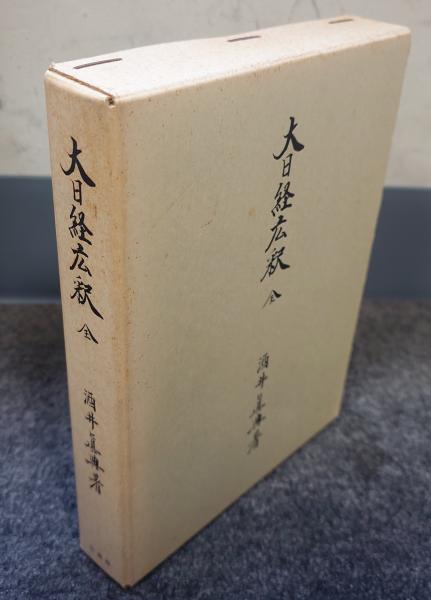 大日経広釈 全
酒井真典著
大日経広釈 全
酒井真典著